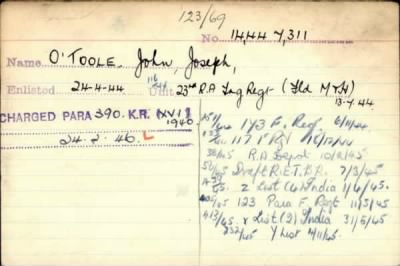 123/69
No. 14447,311
Name O'TOOLE. John, Joseph,
Enlisted 24-4-44 Unit 23rd R.A Trg Regt (Fld M & H)
13-7-44
CHARGED PARA 390. K.R. (XVI) 1940.
24.2.46. L
113 F. Regt 6/11/44
117 F Rgt 16/12/44
R.A Depot 10/2/45
Draft R.E.T.B.R. 7/3/45
Z List (4) India 1/6/45.
123 Para F. Regt 11/5/45
X List (2) India 31/5/45
Y List 4/11/45.